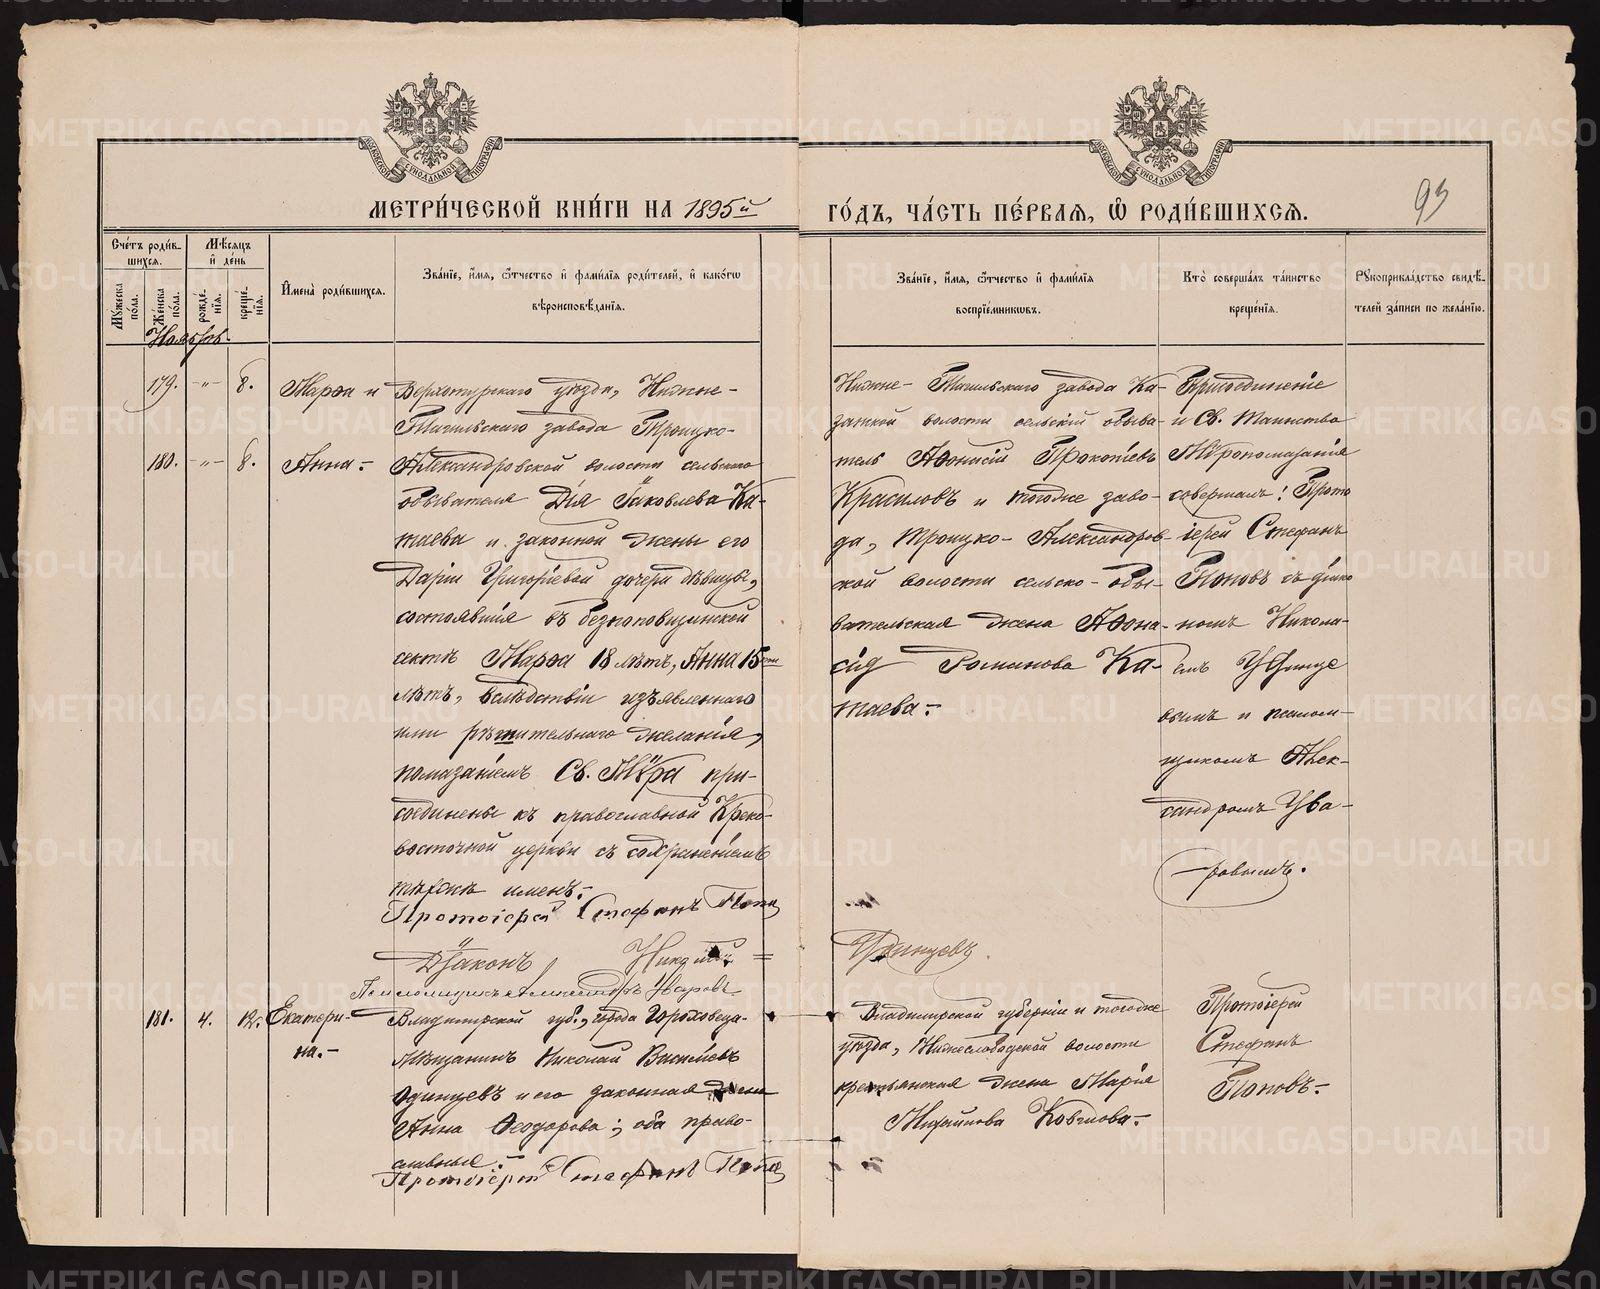 МЕТРИ́ЧЕСКОЙ КНИ́ГИ НА 1895й
ГО́ДЪ, ЧА́СТЬ ПЕ́РВАЯ, Ѽ РОДИ́ВШИХСЯ.
93
Сче́тъ роди́в-
шихся.
Мѣ́сяцъ
и де́нь
Му́жеска по́ла.
Же́нска по́ла.
рожде́-
нїя.
креще́-
нїя.
И҆мена̀ роди́вшихся.
Зва́нїе, и҆́мя, ѻ҆́тчество и҆ фами́лїя роди́телей, и҆ како́гѡ
вѣроисповѣ́данїя.
Зва́нїе, и҆́мя, ѻ҆́тчество и҆ фами́лїя
воспрїе́мникѡвъ.
Кто̀ соверша́лъ та́инство
креще́нїя.
Рꙋкоприкла́дство свидѣ́-
телей за́писи по жела́нїю.
Ноябрь.
179. -"- 8. Марѳа и
180. -"- 8. Анна:-
Верхотурскаго уѣзда, Нижне-
Тагильскаго завода Троицко-
Александровской волости сельскаго
обывателя Дія Іаковлева Ка-
таева и законной жены его
Даріи Григоріевой дочери дѣвицы,
состоявшія въ безпоповщинской
сектѣ Марѳа 18 лѣтъ, Анна 15ти
лѣтъ, вслѣдствіи изъявленнаго
ими рѣшительнаго желанія,
помазаніемъ Св. Мѵра при-
соединены къ православной Греко-
восточной церкви съ сохраненіемъ
тѣхже именъ:-
Протоіерей Стефанъ Попо
Діаконъ Николай =
Псаломщикъ Александръ Уваровъ
Нижне-Тагильскаго завода Ка-
зенной волости сельскій обыва-
тель Аѳонасій Прокопіевъ
Красиловъ и тогоже заво-
да, Троицко-Александров-
кой волости сельско-обы-
вательская жена Аѳона-
сія Романова Ка-
таева:-
Присоединеніе
и Св. Таинство
Мѵропомазанія
совершалъ: Прото
іерей Стефанъ
Поповъ съ діако
номъ Никола-
емъ Удинце
вымъ и псалом-
щикомъ Алек-
сандромъ Ува-
ровымъ.
Удинцевъ.
181. 4. 12. Екатери-
на.-
Владимирской губ., города Гороховца-
Мѣщанинъ Николай Васильевъ
Одинцевъ и его законная жена
Анна Ѳеодорова; оба право-
славные.-
Протоіерей Стефанъ Попо
Владимирской губерніи и тогоже
уѣзда, Нижнеслободской волости
крестьянская жена Марія
Михайлова Ковшова:-
Протоіерей
Стефанъ
Поповъ:-
METRIKI.GASO-URAL.RU